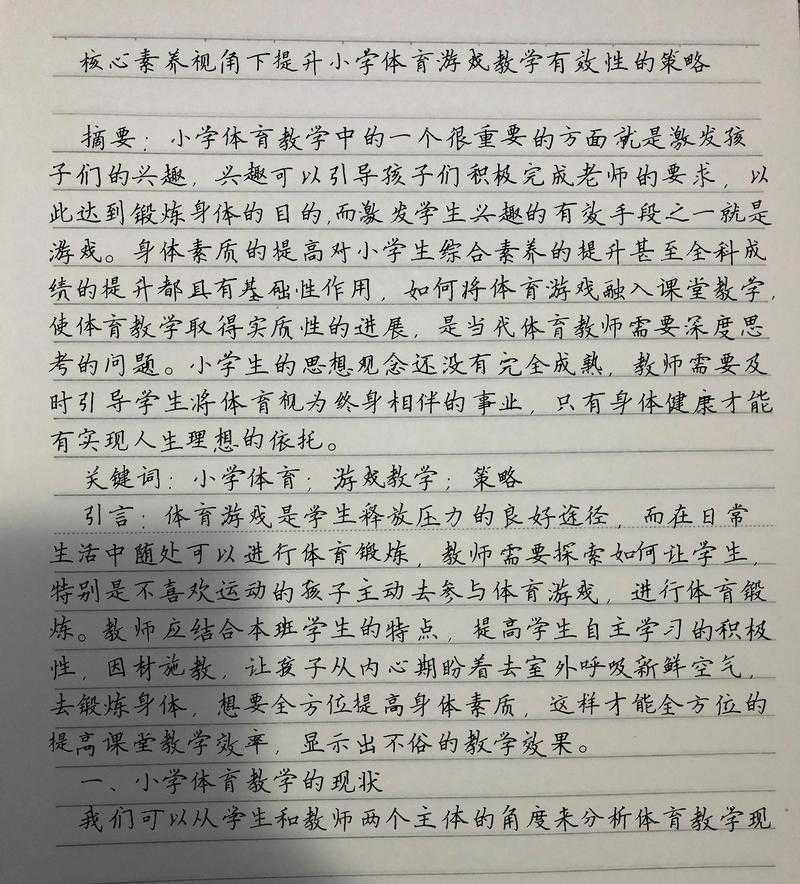 核心素养视角下提升小学体育游戏教学有效性的策略
摘要：小学体育教学中的一个很重要的方面就是激发孩
子们的兴趣，兴趣可以引导孩子们积极完成老师的要求，以
此达到锻炼身体的目的，而激发学生兴趣的有效手段之一就是
游戏。身体素质的提高对小学生综合素养的提升甚至全科成
绩的提升都具有基础性作用，如何将体育游戏融入课堂教学，
使体育教学取得实质性的进展，是当代体育教师需要深度思
考的问题。小学生的思想观念还没有完全成熟，教师需要及
时引导学生将体育视为终身相伴的事业，只有身体健康才能
有实现人生理想的依托。
关键词：小学体育；游戏教学；策略
引言：体育游戏是学生释放压力的良好途径，而在日常
生活中随处可以进行体育锻炼，教师需要探索如何让学生，
特别是不喜欢运动的孩子主动去参与体育游戏，进行体育锻
炼。教师应结合本班学生的特点，提高学生自主学习的积极
性，因材施教，让孩子从内心期盼着去室外呼吸新鲜空气，
去锻炼身体，想要全方位提高身体素质，这样才能全方位的
提高课堂教学效率，显示出不俗的教学效果。
一、小学体育教学的现状
我们可以从学生和教师两个主体的角度来分析体育教学现